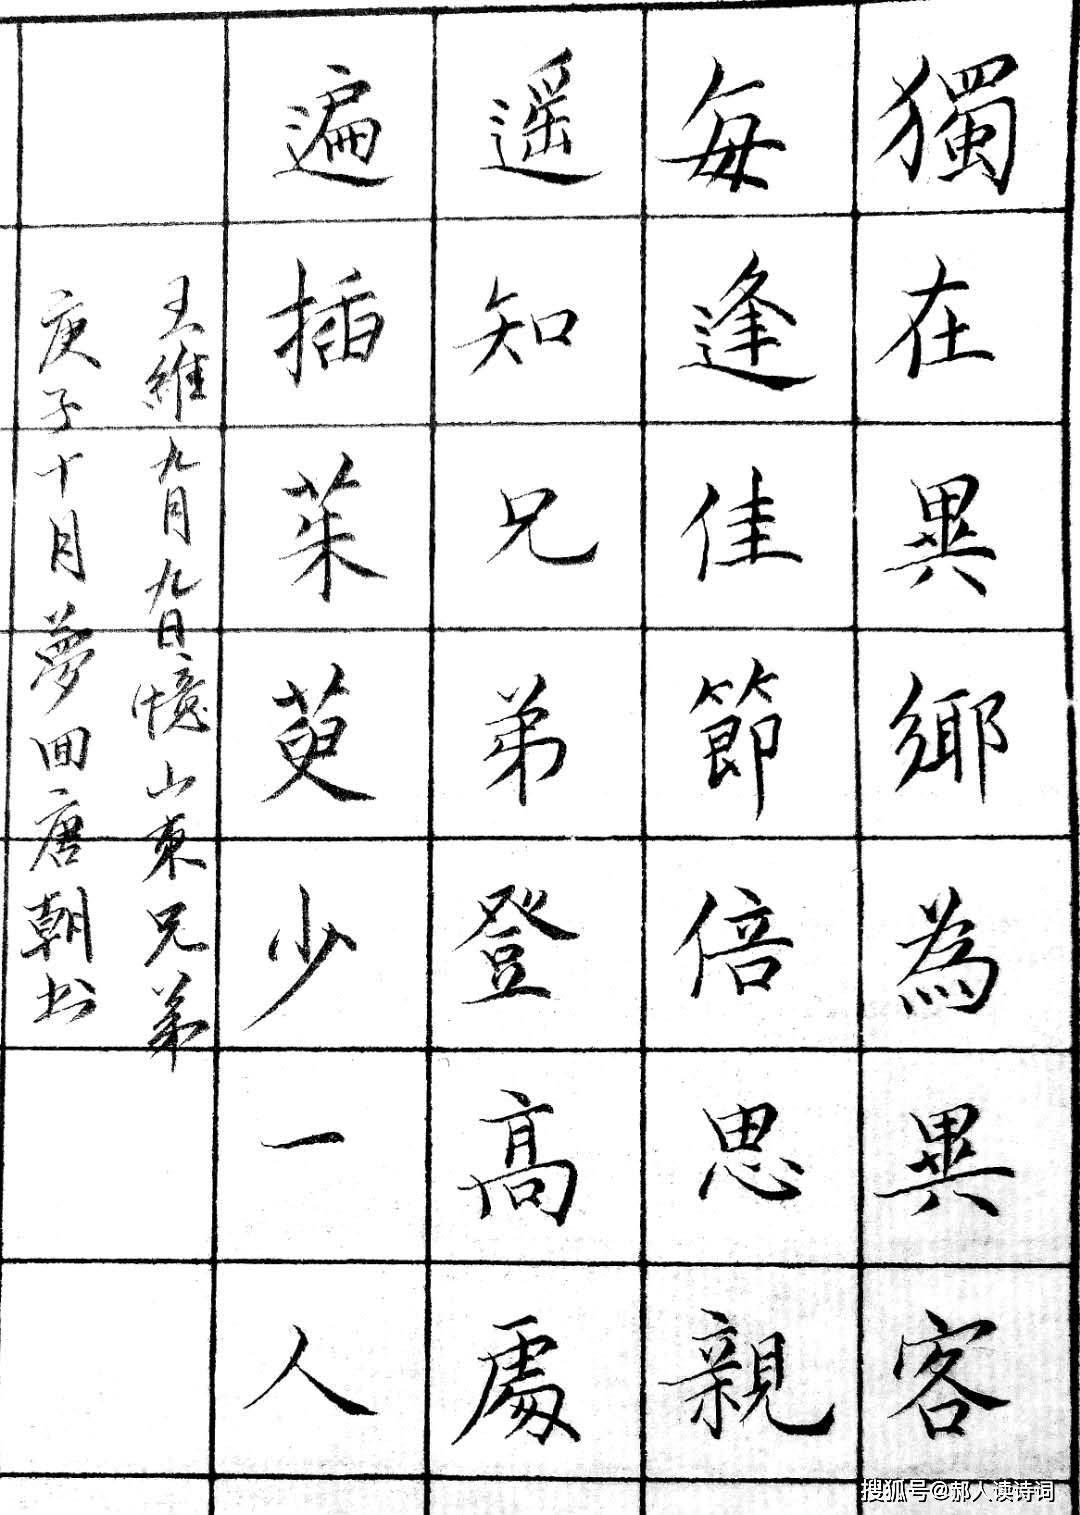 獨在異鄉為異客
每逢佳節倍思親
遥知兄弟登高處
遍插茱萸少一人
王維九月九日憶山東兄弟
庚子十月夢回唐朝书
搜狐号@郝人读诗词